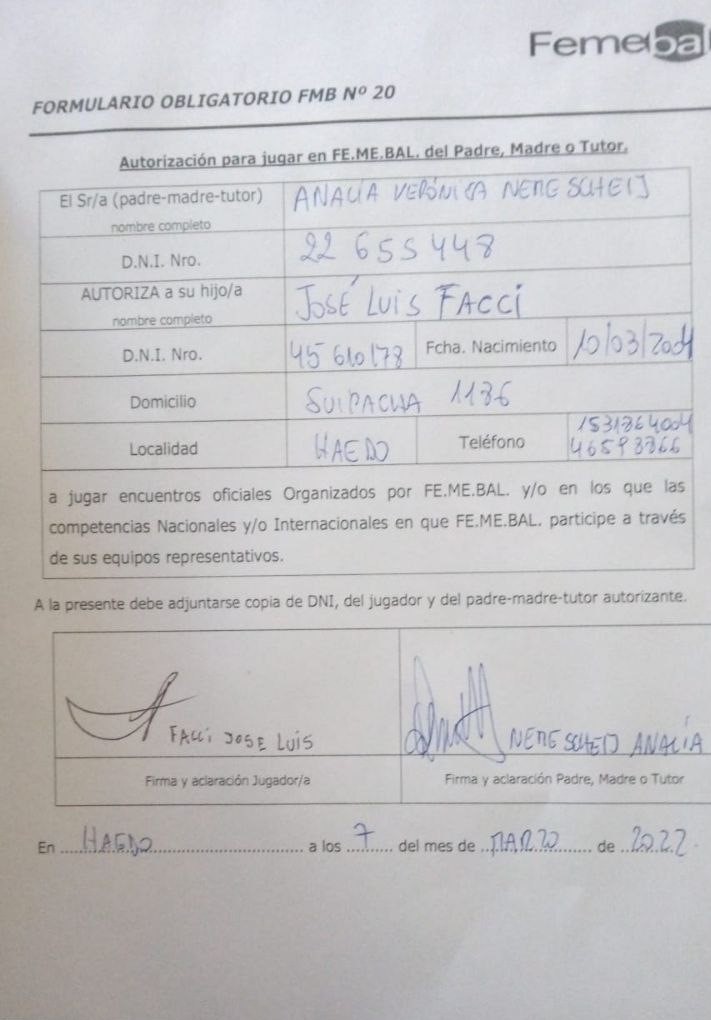 Femebal
FORMULARIO OBLIGATORIO FMB Nº 20
Autorización para jugar en FE.ME.BAL. del Padre, Madre o Tutor.
El Sr/a (padre-madre-tutor) ANALÍA VERÓNICA NEMESCHEIJ
nombre completo
D.N.I. Nro. 22 655 448
AUTORIZA a su hijo/a JOSÉ LUIS FACCI
nombre completo
D.N.I. Nro. 45 610 178 Fcha. Nacimiento 10/03/2004
Domicilio SUIPACHA 1186
Localidad HAEDO Teléfono
a jugar encuentros oficiales Organizados por FE.ME.BAL. y/o en los que las
competencias Nacionales y/o Internacionales en que FE.ME.BAL. participe a través
de sus equipos representativos.
A la presente debe adjuntarse copia de DNI, del jugador y del padre-madre-tutor autorizante.
FACCI JOSE LUIS NEMESCHEIJ ANALÍA
Firma y aclaración Jugador/a Firma y aclaración Padre, Madre o Tutor
En HAEDO a los 7 del mes de MARZO de 2022.